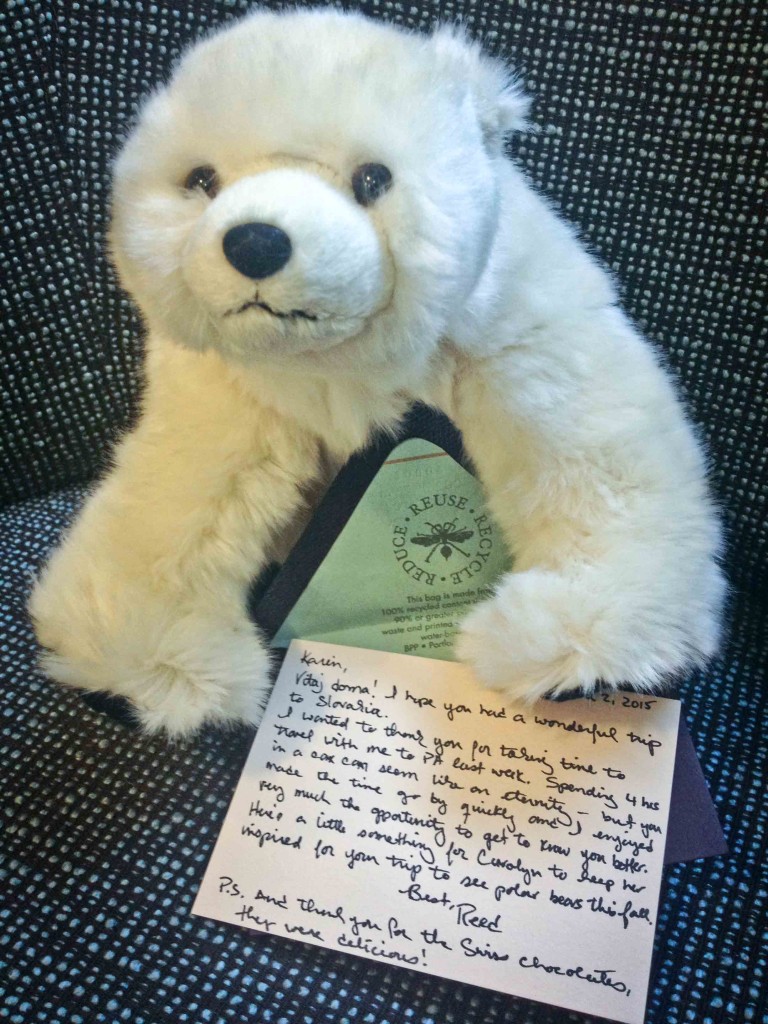 REDUCE • REUSE • RECYCLE •
This bag is made
100% recycled
90% or greater
waste and printed
water-
BPP • Portla
2, 2015
Karin,
Vitaj doma! I hope you had a wonderful trip
to Slovakia.
I wanted to thank you for taking time to
travel with me to PA last week. Spending 4 hrs
in a car can seem like an eternity – but you
made the time go by quickly and I enjoyed
very much the opportunity to get to know you better.
Here's a little something for Carolyn to keep her
inspired for your trip to see polar bears this fall.
Best, Reed
P.S. And thank you for the Swiss chocolates,
they were delicious!